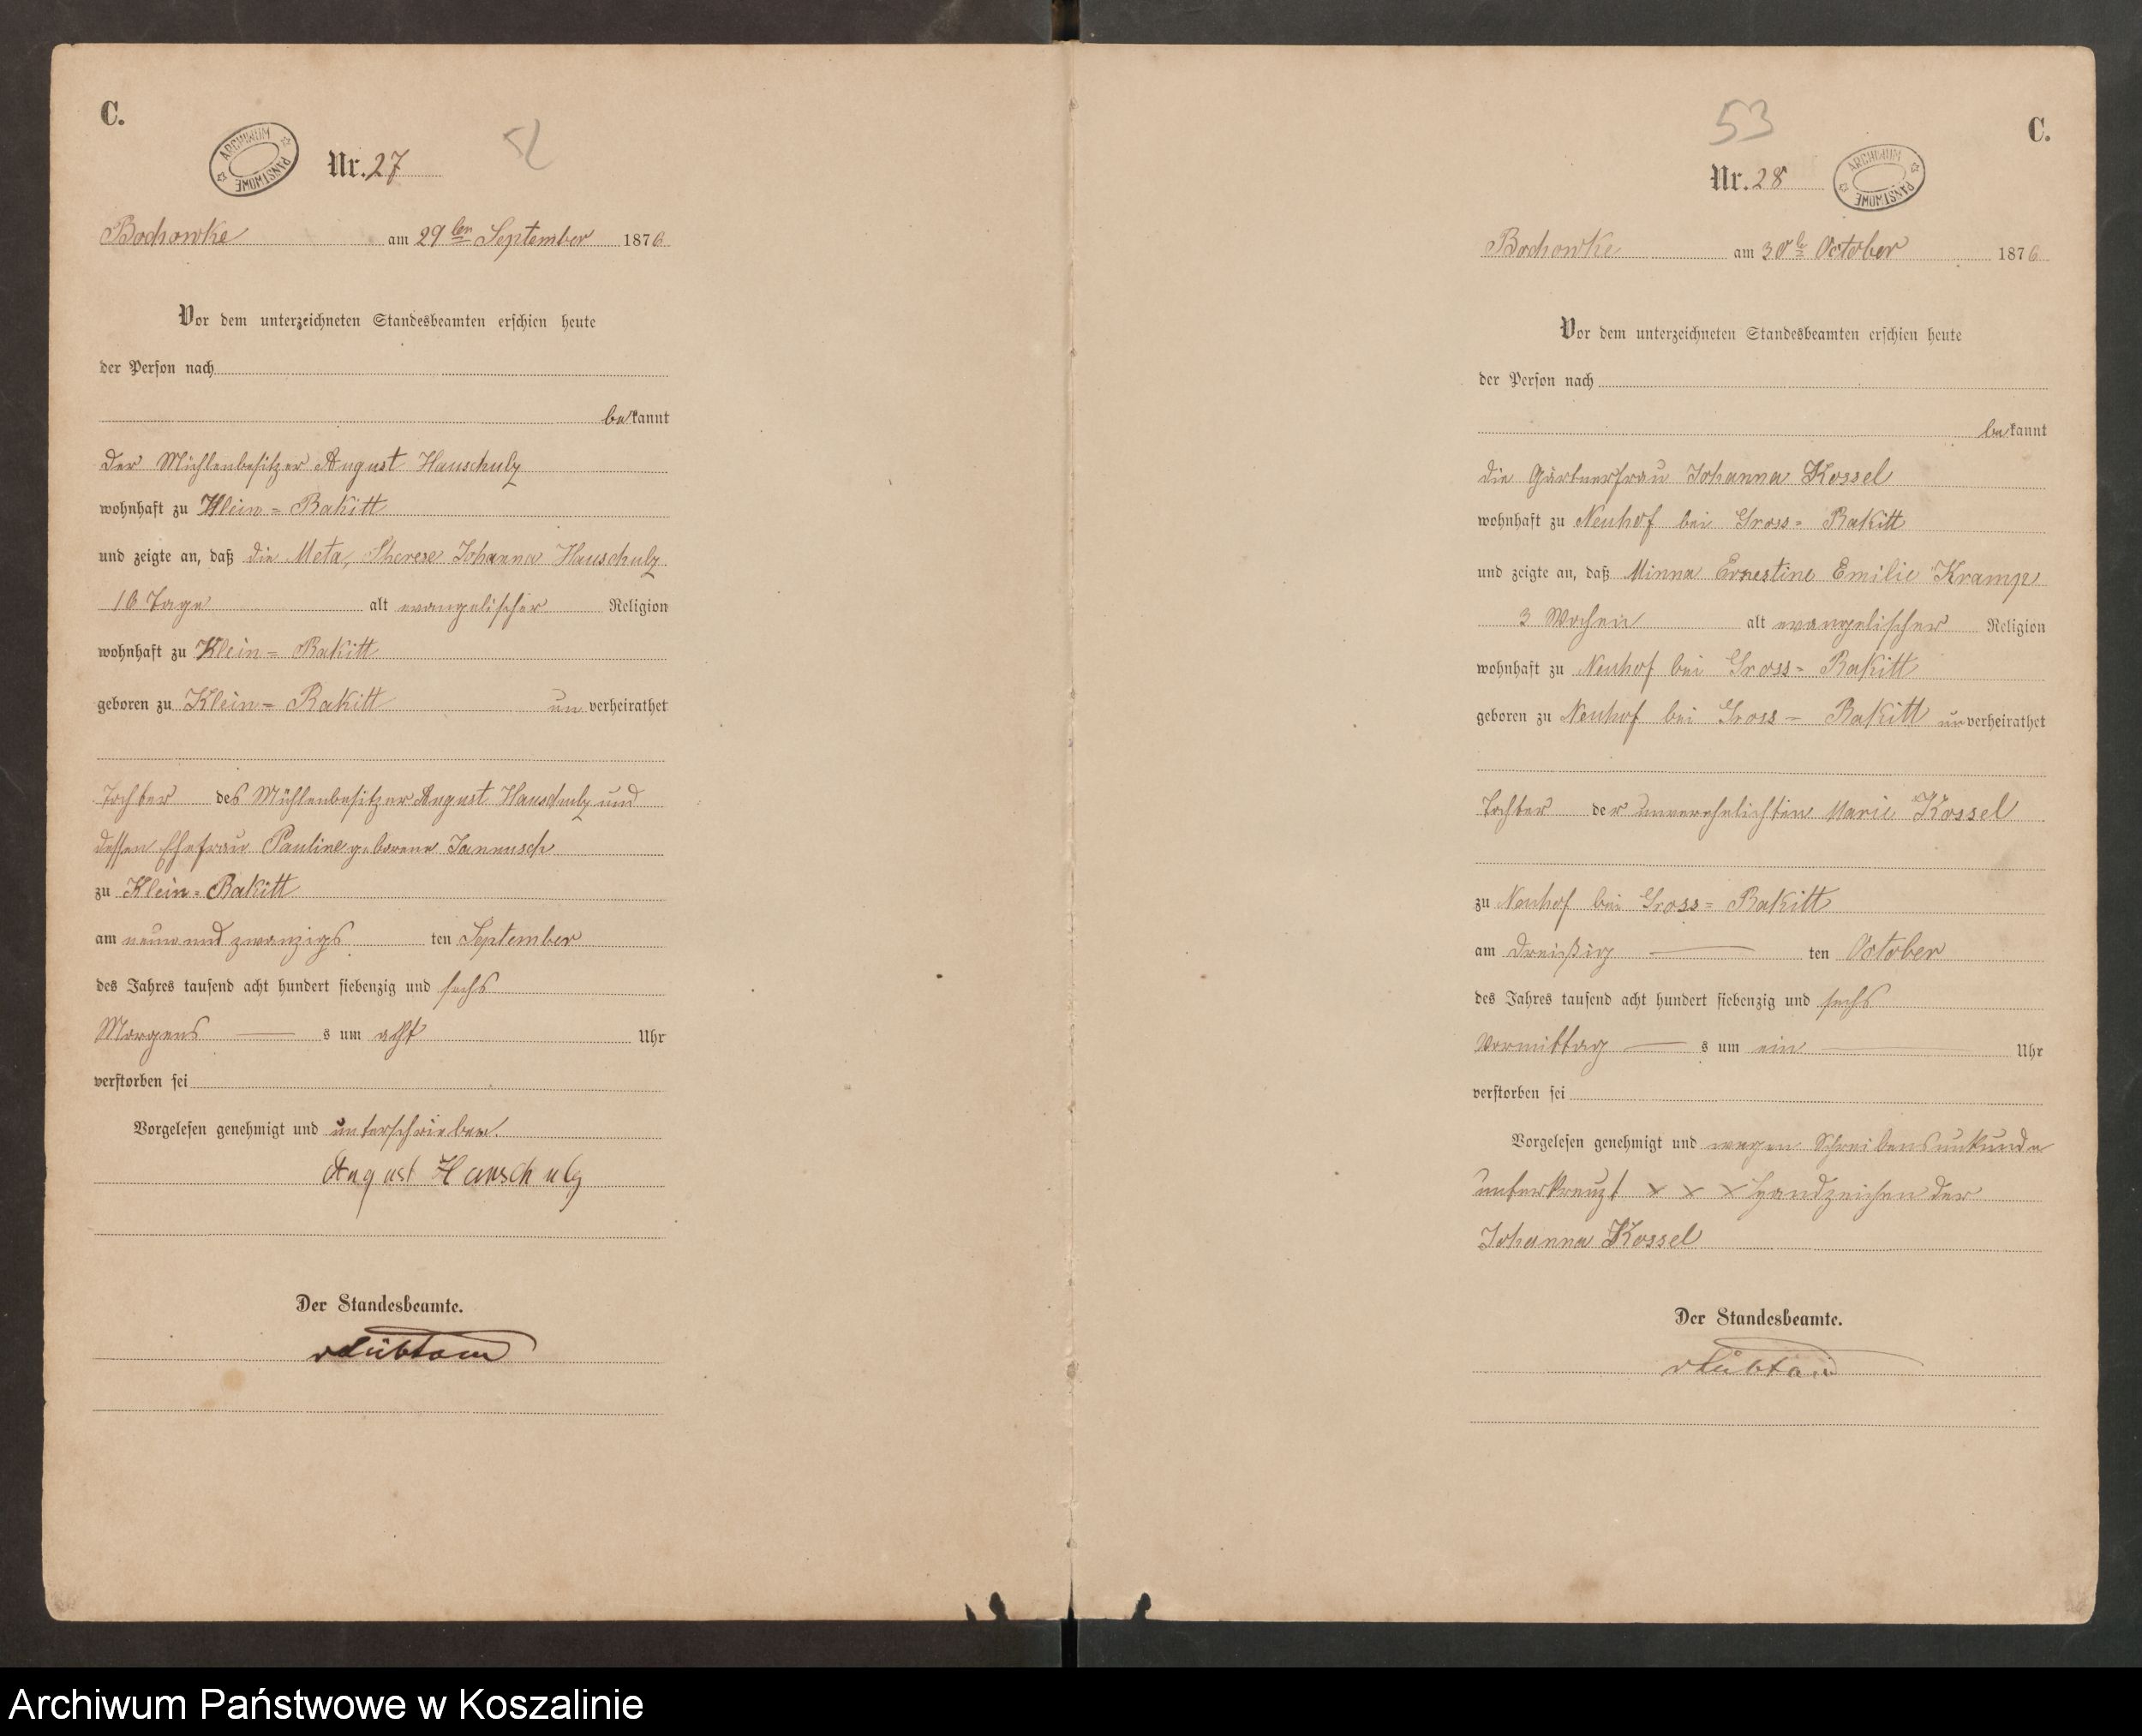 C.
ARCHIWUM PAŃSTWOWE
Nr. 27
52
Bochowke am 29ten September 1876
Vor dem unterzeichneten Standesbeamten erschien heute
der Person nach
bekannt
der Mühlenbesitzer August Hauschulz
wohnhaft zu Klein-Rakitt
und zeigte an, daß die Meta, Therese Johanna Hauschulz
16 Tage alt evangelischer Religion
wohnhaft zu Klein-Rakitt
geboren zu Klein-Rakitt unverheirathet
Tochter des Mühlenbesitzer August Hauschulz und
dessen Ehefrau Pauline geborene
zu Klein-Rakitt
am neun und zwanzigs ten September
des Jahres tausend acht hundert siebenzig und sechs
Morgens s um acht Uhr
verstorben sei
Vorgelesen genehmigt und unterschrieben.
August Hauschulz
Der Standesbeamte.
53
C.
Nr. 28
ARCHIWUM PAŃSTWOWE
Bochowke am 30t October 1876
Vor dem unterzeichneten Standesbeamten erschien heute
der Person nach
bekannt
die Gärtnerfrau Johanna Kossel
wohnhaft zu Neuhof bei Gross-Rakitt
und zeigte an, daß Minna Ernestine Emilie Kramp
3 Wochen alt evangelischer Religion
wohnhaft zu Neuhof bei Gross-Rakitt
geboren zu Neuhof bei Gross-Rakitt unverheirathet
Tochter der unverehelichten Marie Kossel
zu Neuhof bei Gross-Rakitt
am dreißig ten October
des Jahres tausend acht hundert siebenzig und sechs
Vormittag s um ein Uhr
verstorben sei
Vorgelesen genehmigt und wegen Schreibensunkunde
unterkreuzt x x x Handzeichen der
Johanna Kossel
Der Standesbeamte.
Archiwum Państwowe w Koszalinie